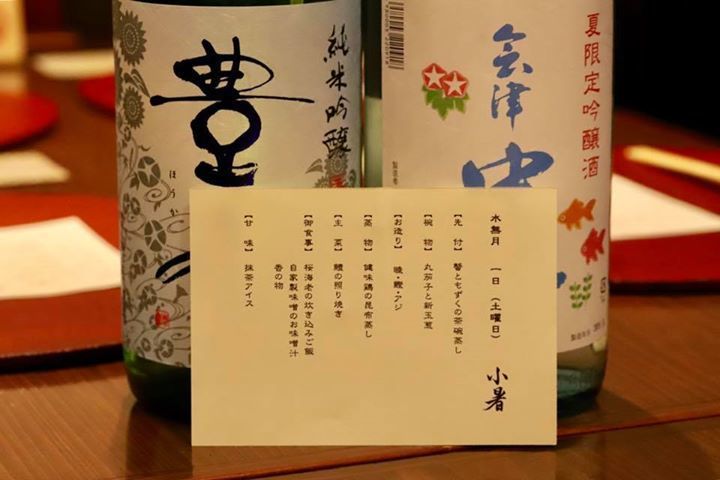 夏限定吟醸酒
会津中
純米吟醸
豊
ほうか
水無月 一日 (土曜日)
【先 付】 蟹ともずくの茶碗蒸し
【椀 物】 丸茄子と新玉葱
【お造り】 ・鰹・アジ
【蒸 物】 健味鶏の昆布蒸し
【主 菜】 の照り焼き
【御食事】 桜海老の炊き込みご飯
自家製味噌のお味噌汁
香の物
【甘 味】 抹茶アイス
小暑